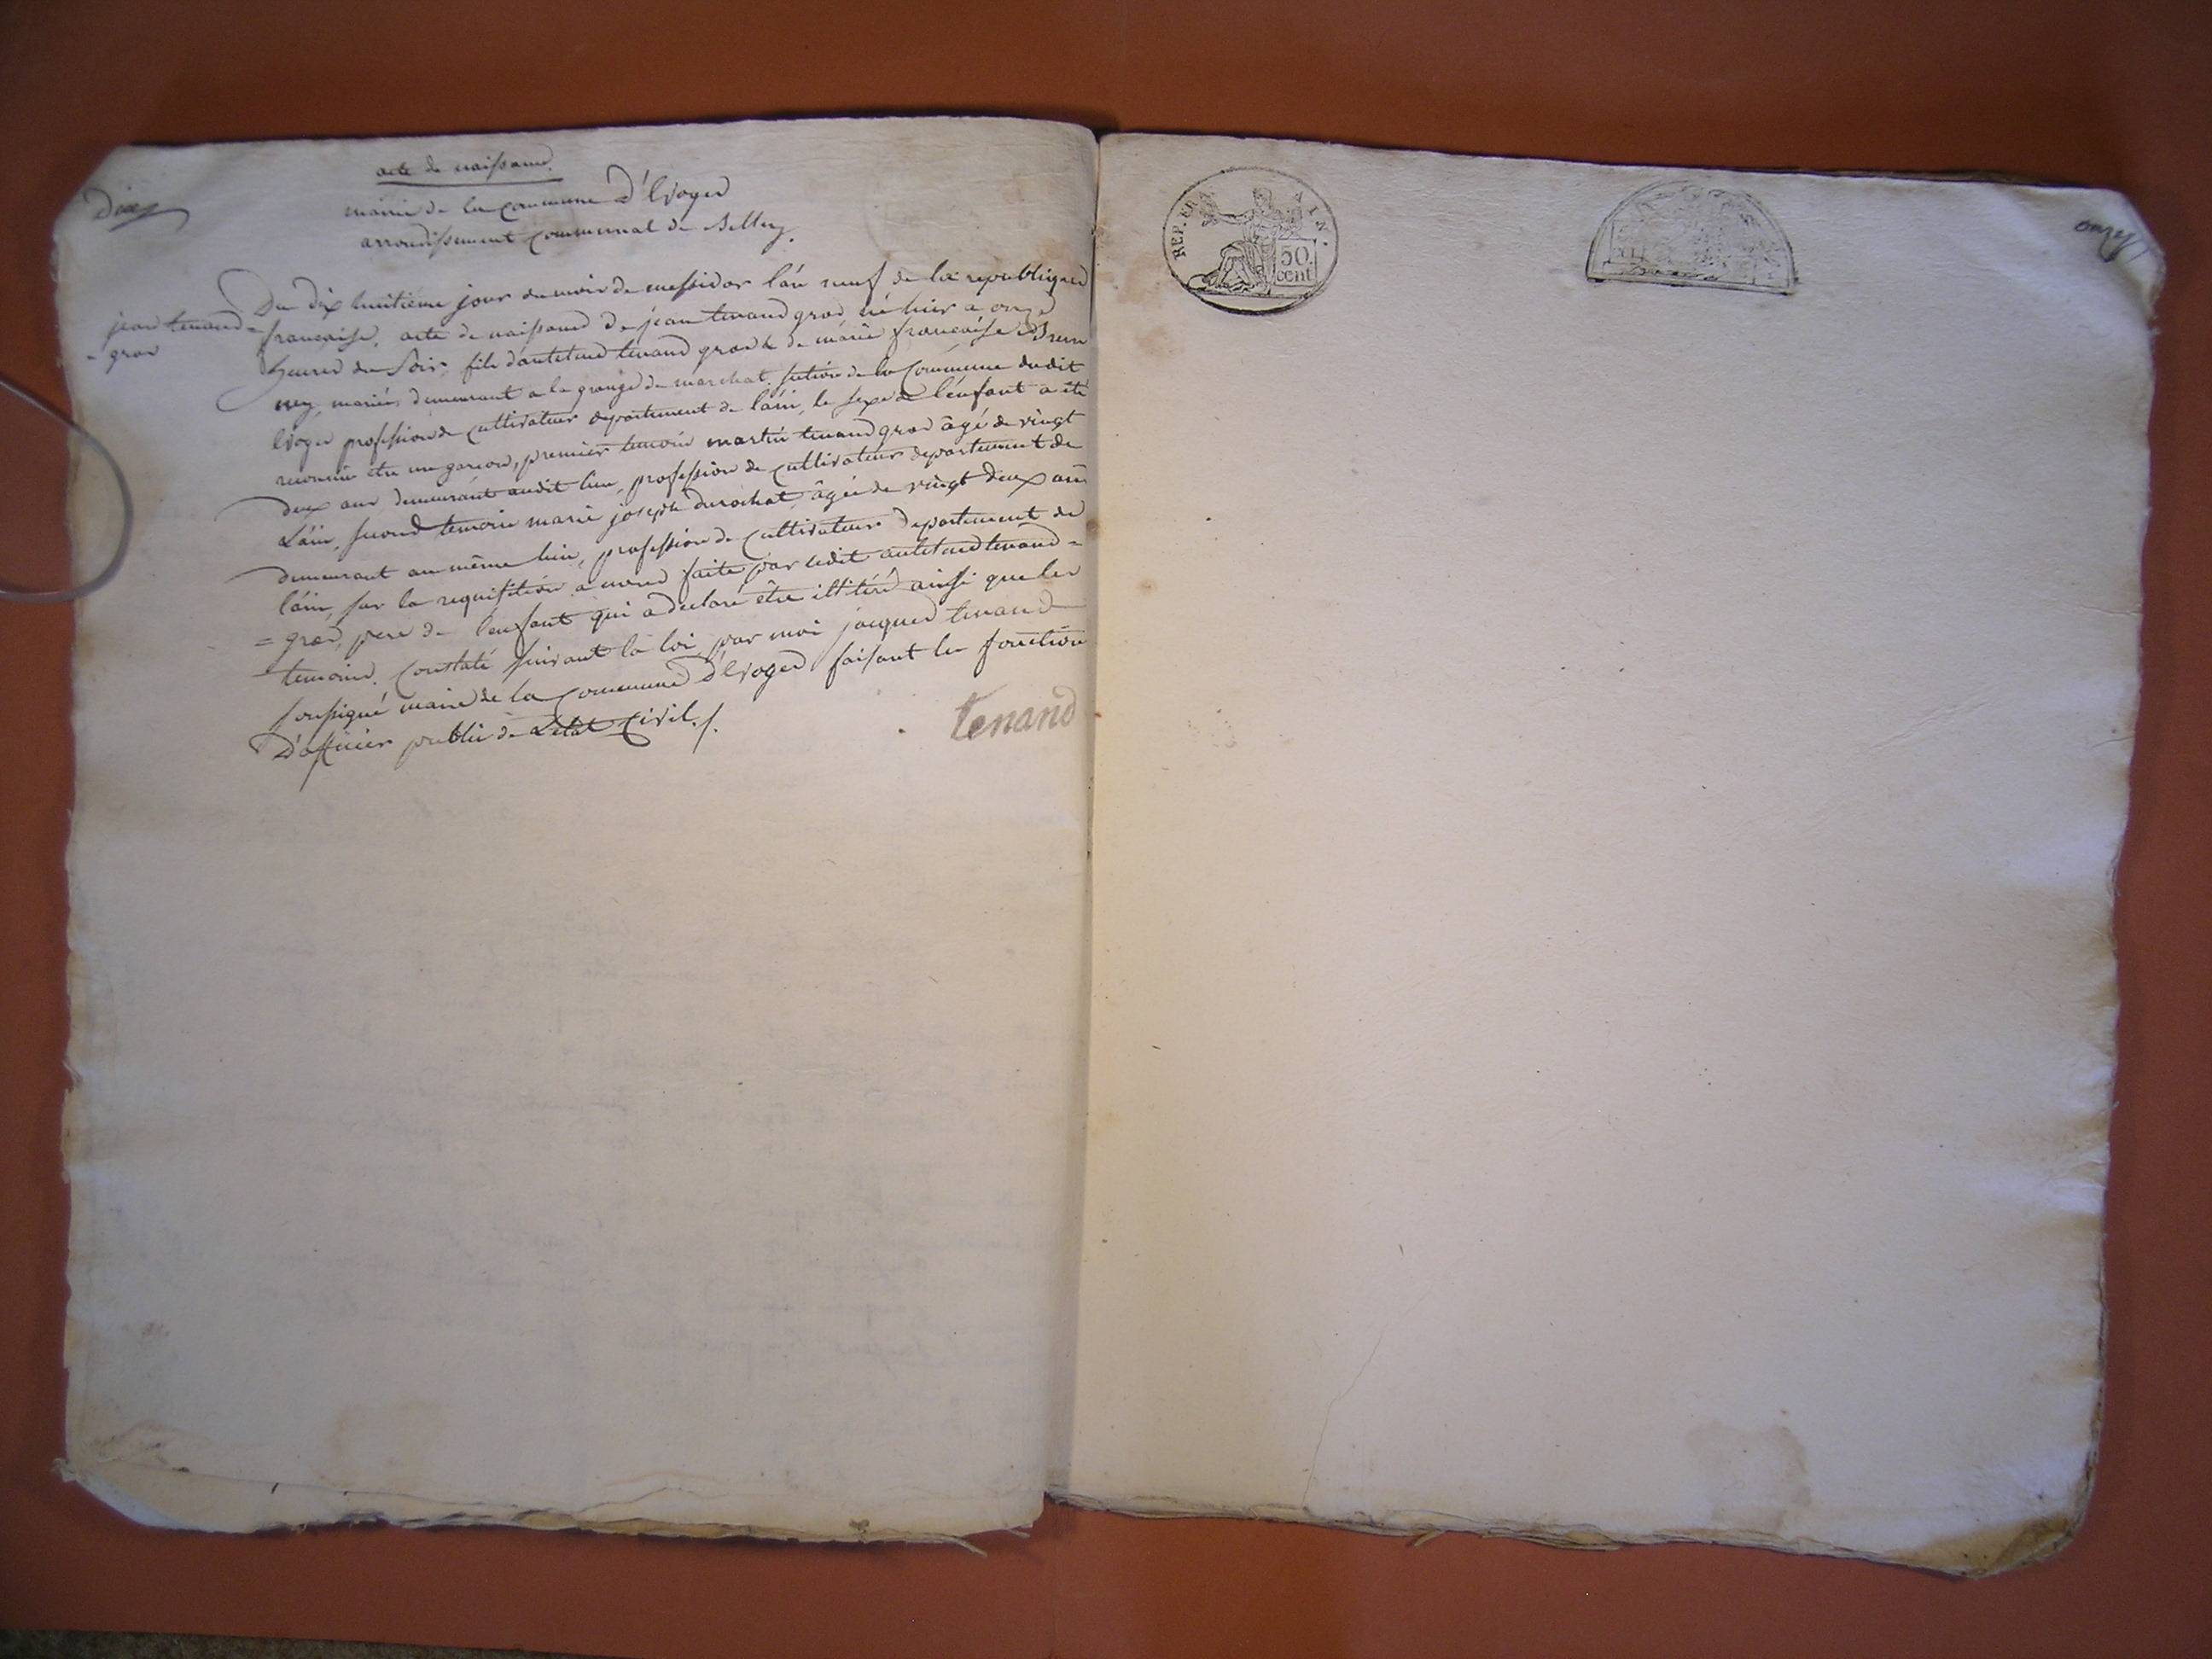 acte de naissance.
Dix
mairie de la commune D'Evoges
arrondissement communal de Belley.
Du dix huitième jour du mois de messidor l'an neuf de la republique
jean tenand =
= gros
française. acte de naissance de jean tenand gros, né hier a onze
heures du soir, fils d'antelme tenand gros & de marie françoise Brun
ney, mariés demeurant a la grange du marchat section de la Commune dudit
Evoges profession de cultivateur departement de l'ain, le sexe de l'enfant a été
reconnu etre un garcon, premier temoin martin tenand gros âgé de vingt
deux ans demeurant audit lieu, profession de cultivateur departement de
L'ain, second temoin marie joseph durochat, âgée de vingt deux ans
demeurant au même lieu, profession de cultivateur departement de
l'ain, sur la requisition a nous faite par ledit antelme tenand =
= gros, pere de l'enfant qui a declaré être illitéré ainsi que les
temoins. Constaté suivant la loi par moi jacques tenand
soussigné maire de la Commune D'Evoges faisant les fonction
D'officier public de L'etat Civil./.
tenand
REP. FRA
50
cent
onze